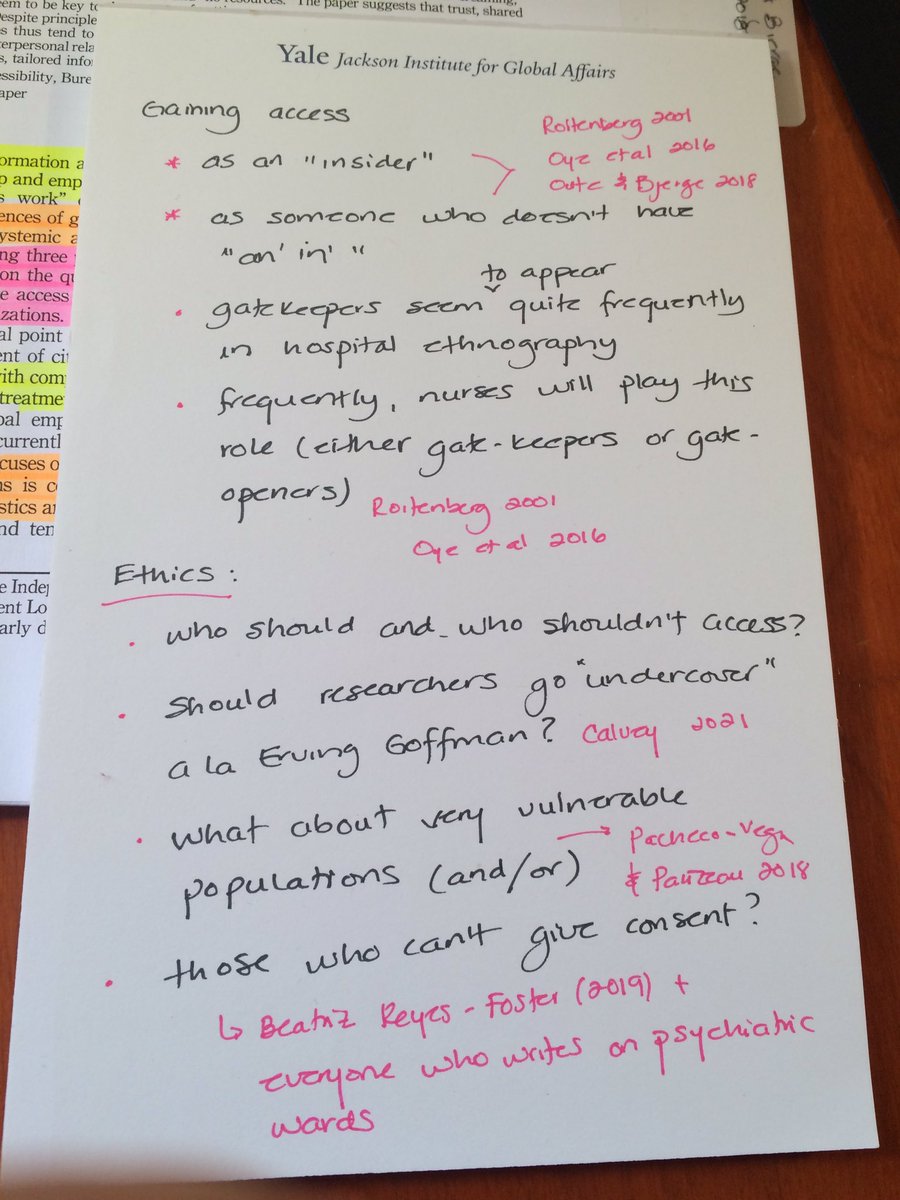 em to be key to
resources. The paper suggests that trust, shared
espite principle
s thus tend to
terpersonal rela
s, tailored infor
essibility, Bure
aper
Yale Jackson Institute for Global Affairs
Gaining access
* as an "insider"
Roitenberg 2001
Oye et al 2016
Oute & Bjerge 2018
* as someone who doesn't have
"an 'in' "
to appear
• gatekeepers seem quite frequently
in hospital ethnography
• frequently, nurses will play this
role (either gate-keepers or gate-
openers)
Roitenberg 2001
Oye et al 2016
ormation a
p and emp
s work"
ences of g
ystemic a
ng three
on the qu
e access
zations.
al point
ent of cit
with com
treatme
bal emp
currentl
cuses o
ns is c
stics an
nd ten
e Indep
ent Lo
arly d
Ethics:
• who should and who shouldn't access?
• should researchers go "undercover"
a la Erving Goffman? Calvey 2021
• what about very vulnerable
populations (and/or)
→ Pacheco-Vega
& Parizeau 2018
• those who can't give consent?
↳ Beatriz Reyes-Foster (2019) +
everyone who writes on psychiatric
wards